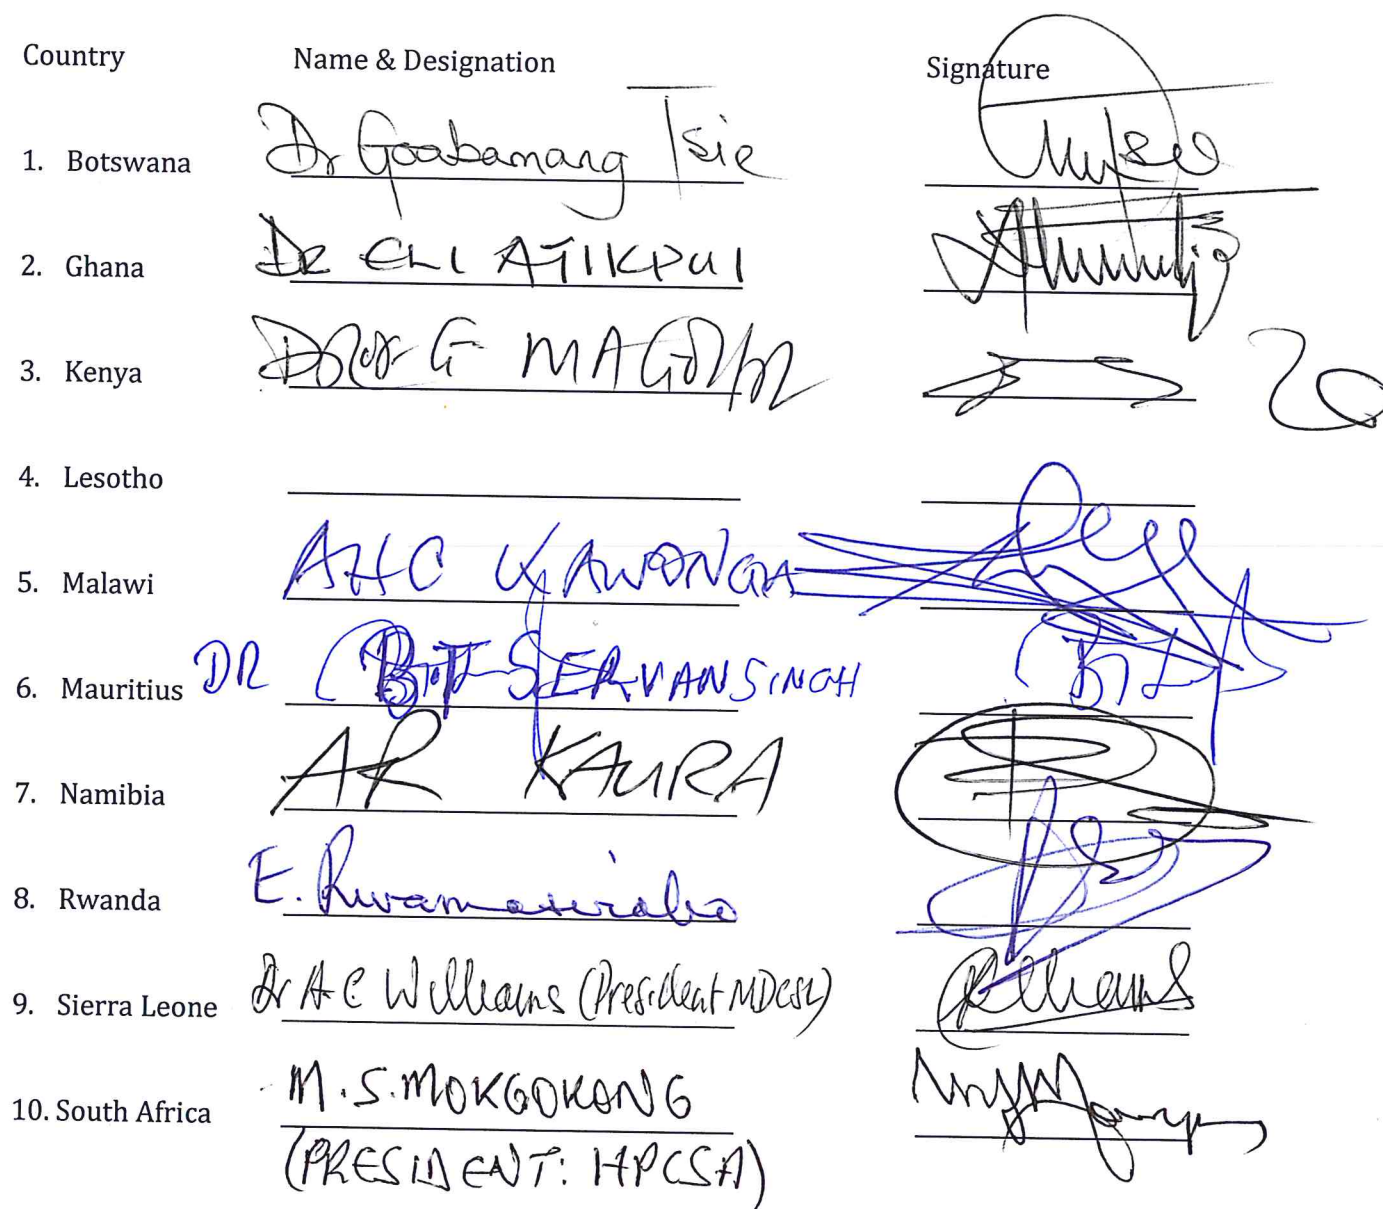 Country Name & Designation Signature
1. Botswana Dr Goabamang Tsie
2. Ghana Dr ELI ATIKPUI
3. Kenya G MAGOHA
4. Lesotho
5. Malawi AHC KAWONGA
6. Mauritius DR SERVANSINGH
7. Namibia AR KAURA
8. Rwanda E. Rwamasirabo
9. Sierra Leone Dr A C Williams (President MDCSL)
10. South Africa M.S. MOKGOKONG
(PRESIDENT: HPCSA)